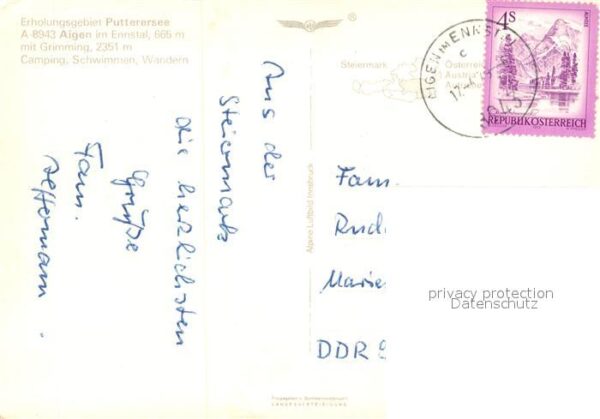 Erholungsgebiet Putterersee
A-8943 Aigen im Ennstal, 665 m
mit Grimming, 2351 m
Camping, Schwimmen, Wandern
Aus der
Steiermark
die herzlichsten
Grüße
Fam.
Alpine Luftbild Innsbruck
Steiermark
4S
REPUBLIK ÖSTERREICH
Fam.
Rud
Marie
DDR
privacy protection
Datenschutz